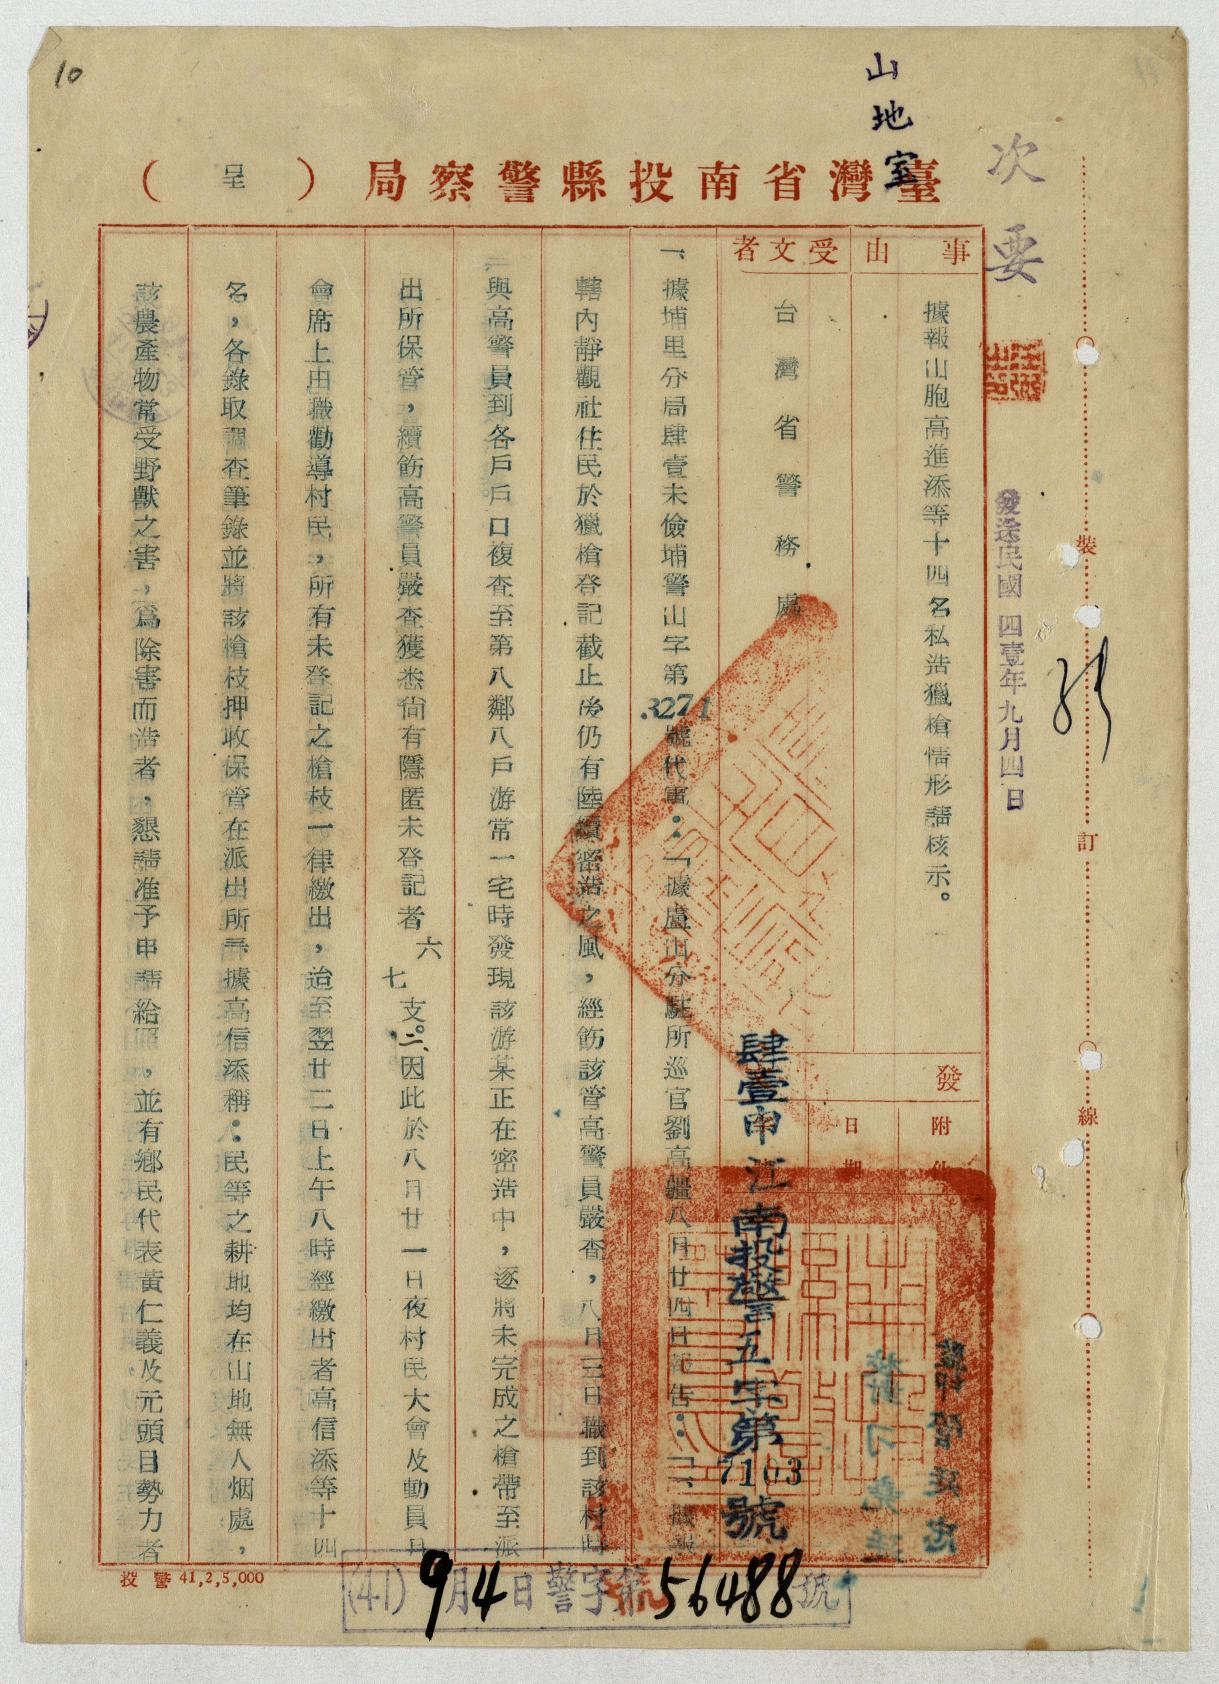 10
山地室
次要
臺灣省南投縣警察局（呈）
事由
受文者
據報山胞高進添等十四名私造獵槍情形請核示。
台灣省警務處
發
附件
日期
肆壹申江南投警五字第7103號
發送民國四壹年九月四日
裝
訂
線
一、據埔里分局肆壹未儉埔警山字第3271號代電：「據盧山分駐所巡官劉高疆八月廿四日報告：「一、據報
轄內靜觀社住民於獵槍登記截止後仍有陸續密造之風，經飭該管高警員嚴查，八月三日職到該村時
與高警員到各戶戶口複查至第八鄰八戶游常一宅時發現該游某正在密造中，逐將未完成之槍帶至派
出所保管，續飭高警員嚴查獲悉尙有隱匿未登記者六七支。二、因此於八月廿一日夜村民大會及動員月
會席上由職勸導村民，所有未登記之槍枝一律繳出，迨至翌廿二日上午八時經繳出者高信添等十四
名，各錄取調查筆錄並將該槍枝押收保管在派出所，據高信添稱：民等之耕地均在山地無人烟處，
該農產物常受野獸之害，爲除害而造者，懇請准予申請給照，並有鄉民代表黃仁義及元頭目勢力者
投警 41,2,5,000
(41) 9月4日警字第56488號